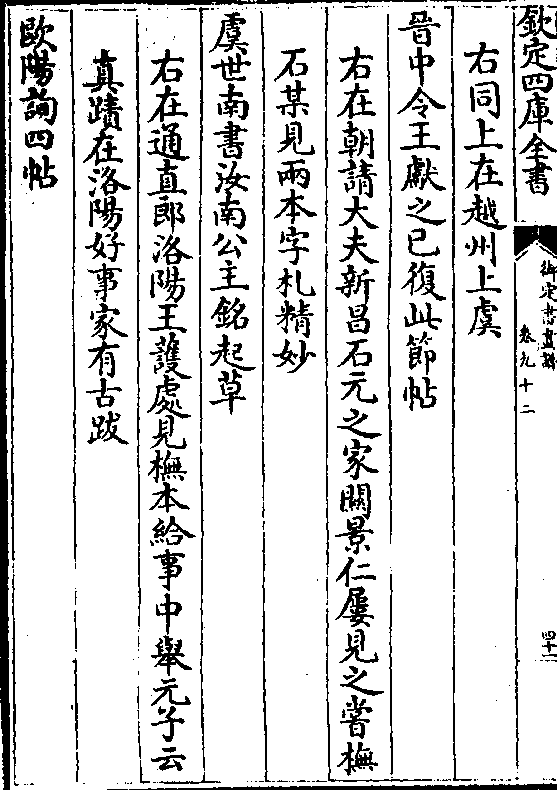 欽定四庫全書
御定書畫譜
卷九十二
四十一
右同上在越州上虞
晉中令王獻之已復此節帖
右在朝請大夫新昌石元之家關景仁屢見之嘗橅
石某見兩本字札精妙
虞世南書汝南公主銘起草
右在通直郎洛陽王護處見橅本給事中舉元子云
真蹟在洛陽好事家有古跋
歐陽詢四帖